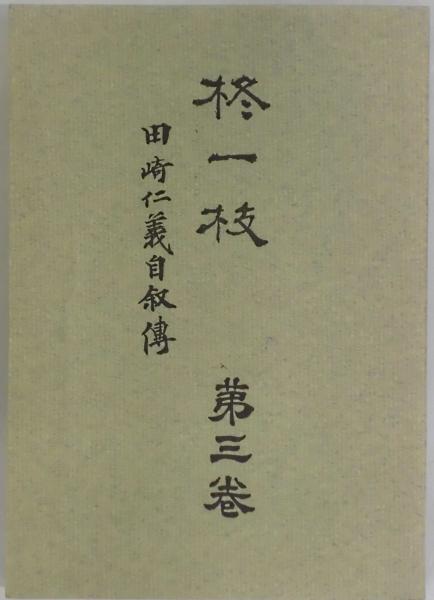 柊一枝 第三巻
田崎仁義自叙傳